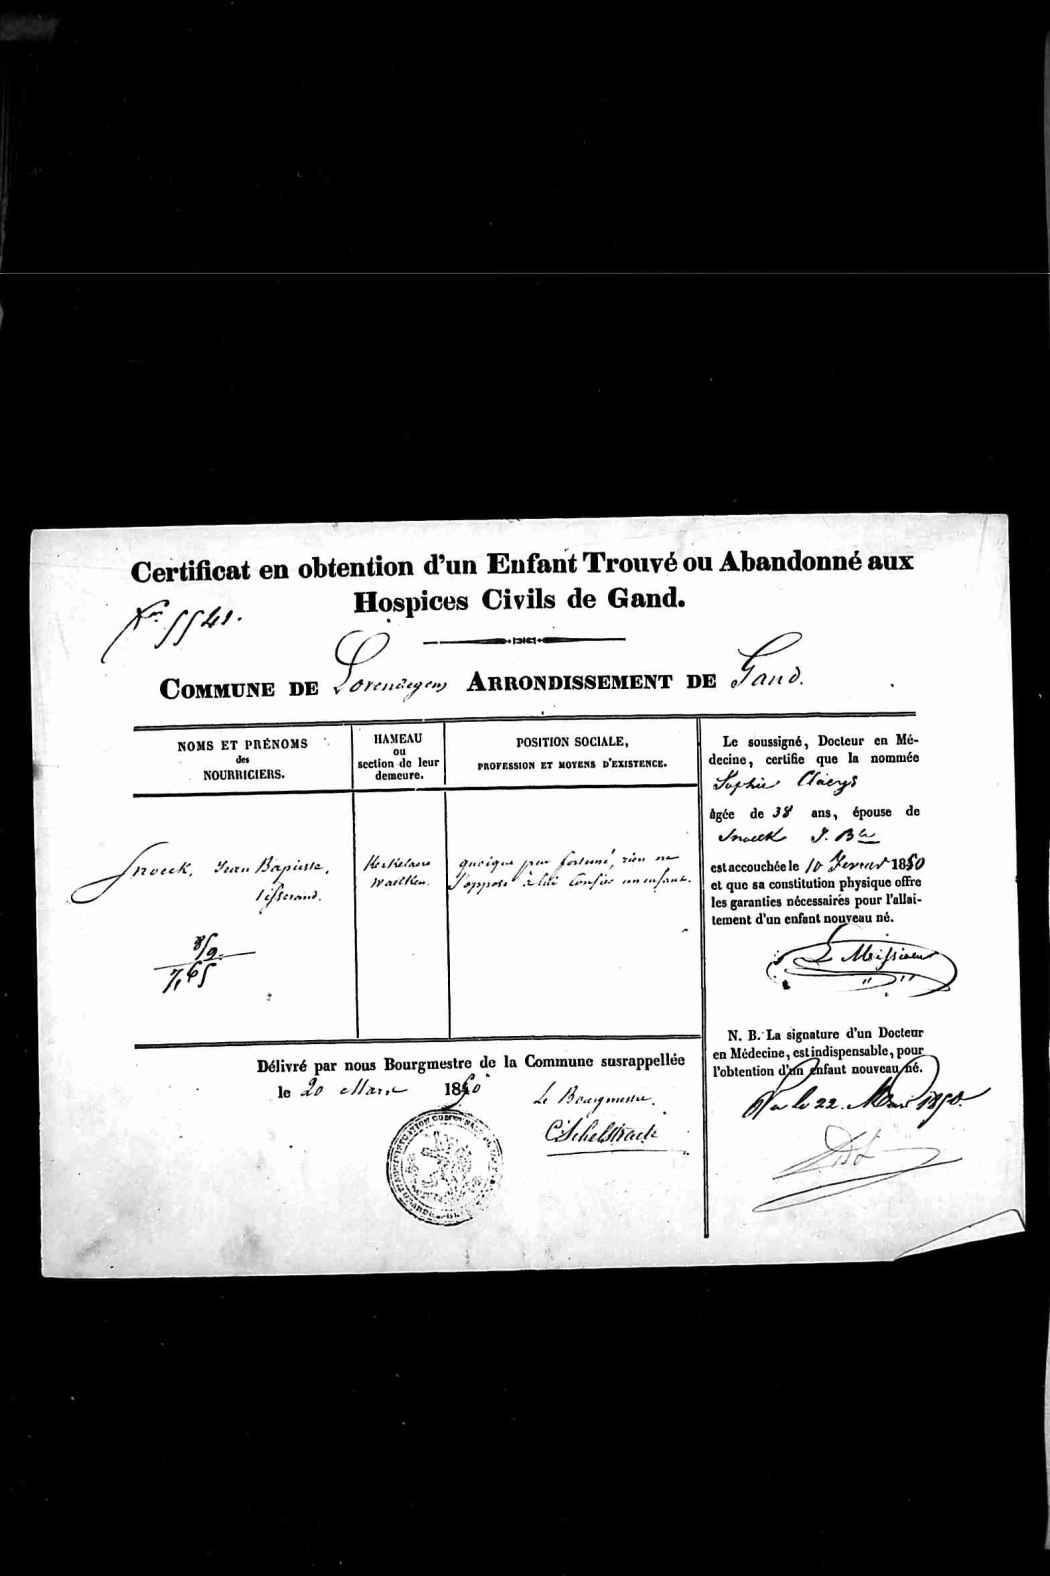 Certificat en obtention d'un Enfant Trouvé ou Abandonné aux
Hospices Civils de Gand.
No 5541.
COMMUNE DE Lovendegem ARRONDISSEMENT DE Gand.
NOMS ET PRÉNOMS
des
NOURRICIERS.
HAMEAU
ou
section de leur
demeure.
POSITION SOCIALE,
PROFESSION ET MOYENS D'EXISTENCE.
Snoeck, Jean Baptiste,
tisserand.
8/9.
7,65
quoique peu fortuné, rien ne
s'oppose à lui confier un enfant.
Le soussigné, Docteur en Mé-
decine, certifie que la nommée
Sophie Claeys
âgée de 38 ans, épouse de
Snoeck J. Bte
est accouchée le 10 Fevrier 1850
et que sa constitution physique offre
les garanties nécessaires pour l'allai-
tement d'un enfant nouveau né.
N. B. La signature d'un Docteur
en Médecine, est indispensable, pour
l'obtention d'un enfant nouveau né.
le 22. Mars 1850.
Délivré par nous Bourgmestre de la Commune susrappellée
le 20 Mars 1850
Le Bourgmestre.